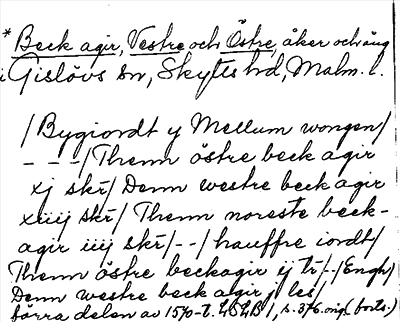 * Beck agir, Vestre och Östre, åker och äng
i Gislövs sn, Skytts hd, Malm. l.
/Bygiordt y Mellum wongen/
- - -/Thenn östre beck agir
xj skr/ Denn westre beck agir
xiiij skr/ Thenn noreste beck-
agir iiij skr/- -/ hauffre iordt/
Thenn östre beckagir ij tr/-/Engh/
Denn westre beck agir j les/
förra delen av 1570-t. LSLB 1, s. 376. orig. (forts.)